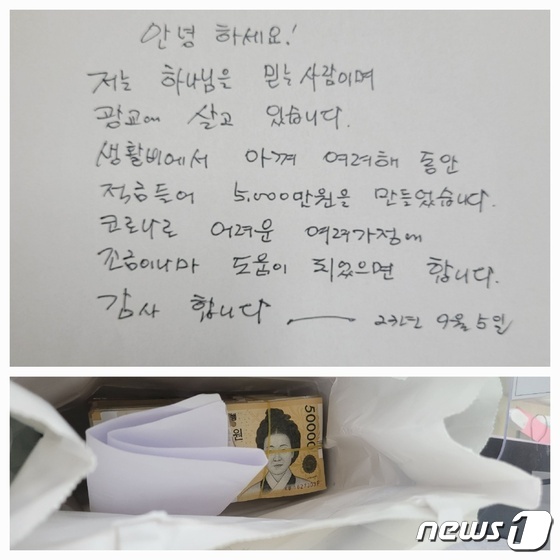 안녕 하세요!
저는 하나님은 믿는 사람이며
광교에 살고 있습니다.
생활비에서 아껴 여려해 동안
적금들어 5.000만원을 만들었습니다.
코로나로 어려운 여려가정에
조금이나마 도움이 되었으면 합니다.
감사 합니다 23년 9월 5일
50000
원
news1